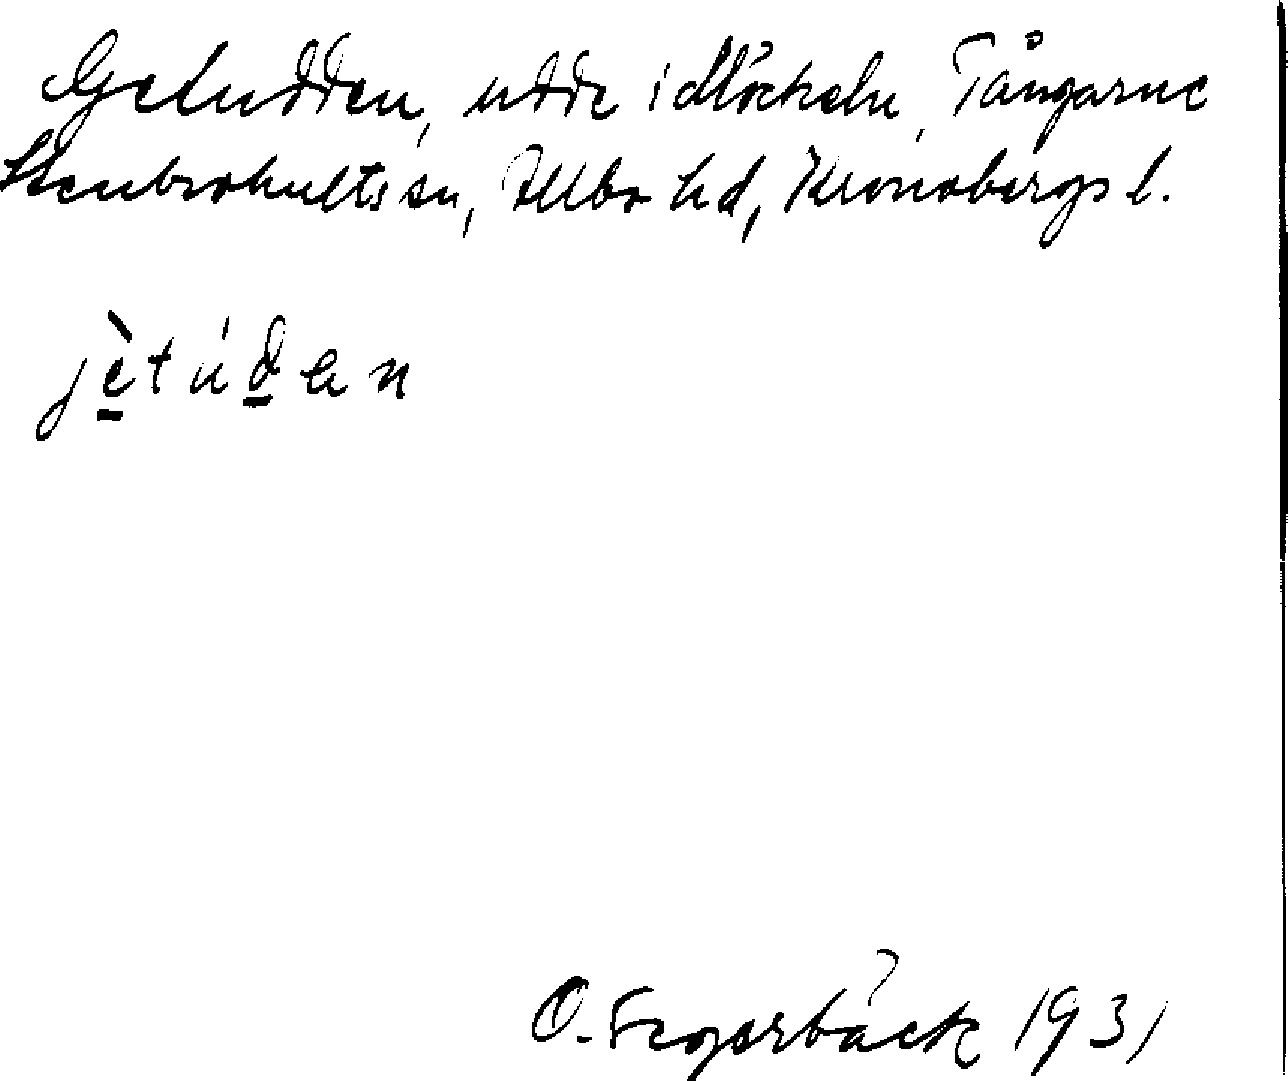 Getudden, udde i Möckeln, Tångarne
Stenbrohults sn, Allbo hd, Kronobergs l.
jètúden
O. Fegerbäck 1931